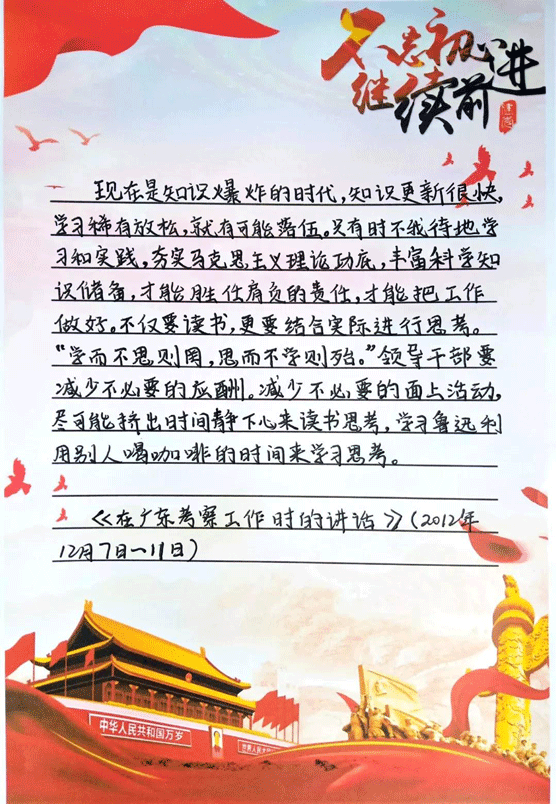 不忘初心
继续前进
现在是知识爆炸的时代，知识更新很快，
学习稀有放松，就有可能落伍。只有时不我待地学
习和实践，夯实马克思主义理论功底，丰富科学知
识储备，才能胜任肩负的责任，才能把工作
做好。不仅要读书，更要结合实际进行思考。
“学而不思则罔，思而不学则殆。”领导干部要
减少不必要的应酬。减少不必要的面上活动，
尽可能挤出时间静下心来读书思考，学习鲁迅利
用别人喝咖啡的时间来学习思考。
《在广东考察工作时的讲话》（2012年
12月7日～11日）
中华人民共和国万岁